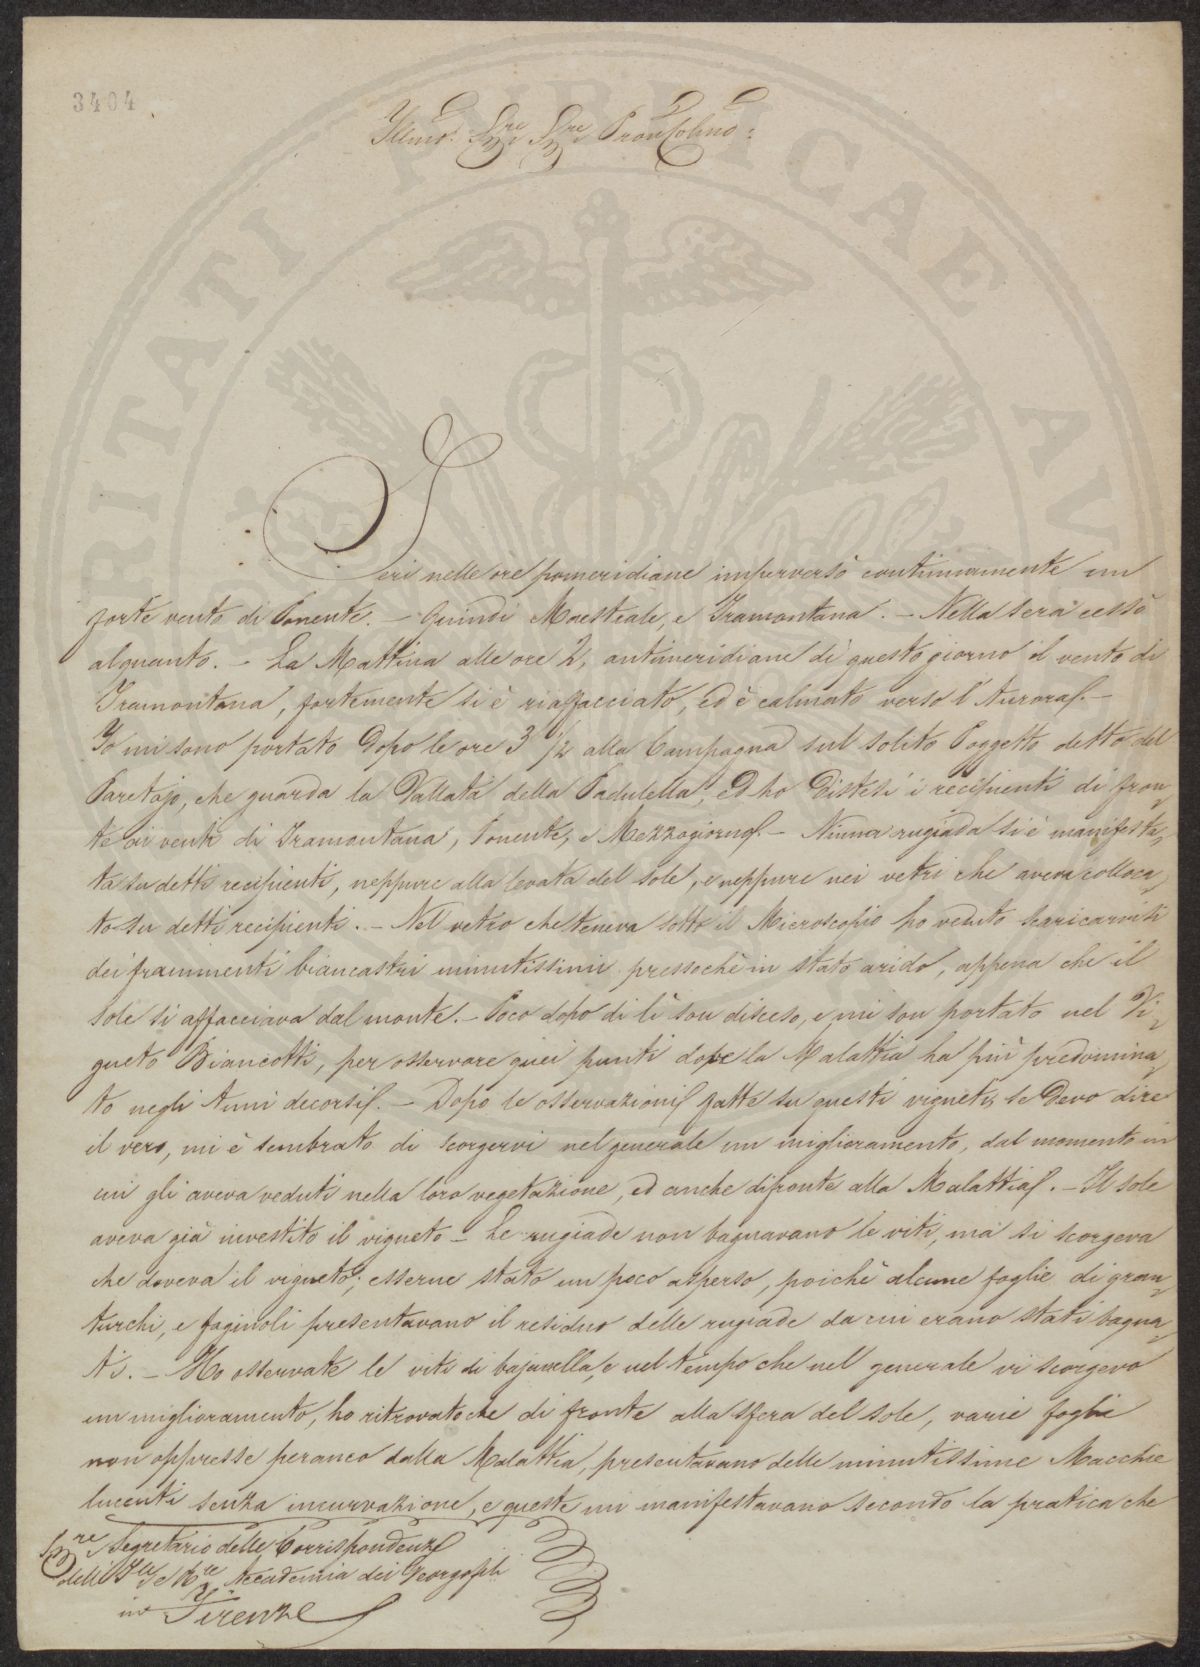 3404
Illmo. Sigre Sigre Pron Colmo:
Ieri nelle ore pomeridiane imperversò continuamente un
forte vento di Ponente. – Quindi Maestrale, e Tramontana. – Nella sera cessò
alquanto. – La Mattina alle ore 2, antimeridiane di questo giorno il vento di
Tramontana, fortemente si è riaffacciato, ed è calmato verso l'Aurora. –
Io mi sono portato dopo le ore 3 1/2 alla Campagna sul solito Poggetto detto del
Paretajo, che guarda la Vallata della Padulella, ed ho distesi i recipienti di fron-
te ai venti di Tramontana, Ponente, e Mezzogiorno. – Niuna rugiada si è manifesta-
ta su detti recipienti, neppure alla levata del sole, e neppure nei vetri che aveva colloca-
to su detti recipienti. – Nel vetro che teneva sotto il Microscopio ho veduto scaricarvisi
dei frammenti biancastri minutissimi pressochè in stato arido, appena che il
sole si affacciava dal monte. – Poco dopo di lì son disceso, e mi son portato nel Vi-
gneto Biancotti, per osservare quei punti dove la Malattia ha più predomina-
to negli Anni decorsi. – Dopo le osservazioni fatte su questi vigneti, se devo dire
il vero, mi è sembrato di scorgervi nel generale un miglioramento, dal momento in
cui gli aveva veduti nella loro vegetazione, ed anche difronte alla Malattia. – Il sole
aveva già investito il vigneto – Le rugiade non bagnavano le viti, ma si scorgeva
che doveva il vigneto, esserne stato un poco asperso, poichè alcune foglie di gran-
turchi, e faginoli presentavano il residuo delle rugiade da cui erano stati bagna-
ti. – Ho osservate le viti di bajunella, e nel tempo che nel generale vi scorgevo
un miglioramento, ho ritrovato che di fronte alla sfera del sole, varie foglie
non oppresse peranco dalla Malattia, presentavano delle minutissime Macchie
lucenti senza incurvazione, e queste mi manifestavano secondo la pratica che
Sigre Segretario delle Corrispondenze
dell' I e Rle Accademia dei Georgofili
in Firenze
RITATI PUBLICAE AV